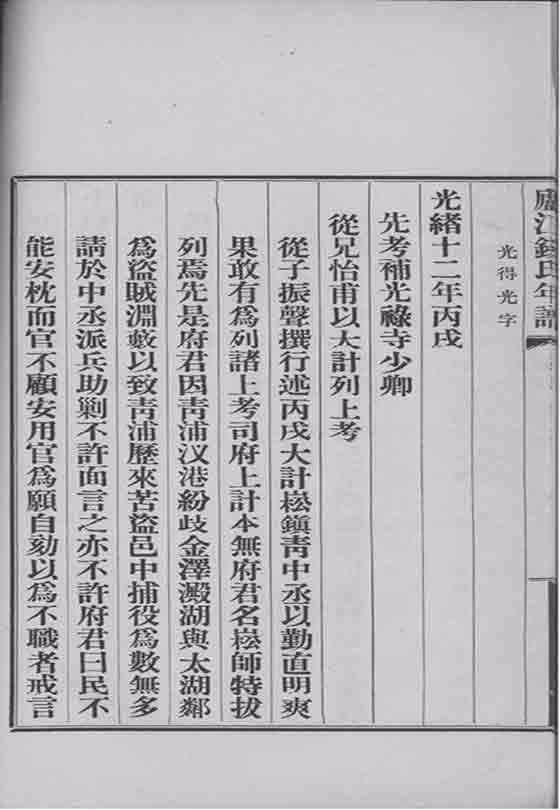 廬江錢氏年譜
光得光字
光緒十二年丙戌
先考補光祿寺少卿
從兄怡甫以大計列上考
從子振聲撰行述丙戌大計崧鎮靑中丞以勤直明爽
果敢有爲列諸上考司府上計本無府君名崧師特拔
列焉先是府君因靑浦汊港紛歧金澤澱湖與太湖鄰
爲盜賊淵藪以致靑浦歷來苦盜邑中捕役爲數無多
請於中丞派兵助剿不許面言之亦不許府君曰民不
能安枕而官不顧安用官爲願自劾以爲不職者戒言